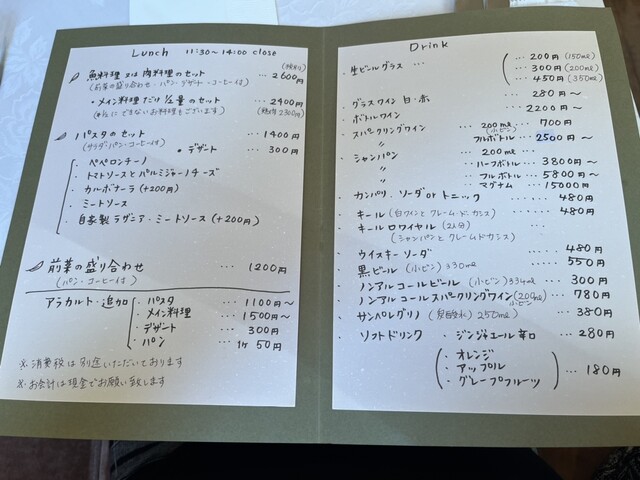 Lunch 11:30〜14:00 close
(税別)
魚料理 又は 肉料理のセット … 2600円
(前菜の盛り合わせ・パン・デザート・コーヒー付)
・メイン料理だけ½量のセット … 2400円
(※½にできないお料理もございます)
パスタのセット … 1400円
(サラダ・パン・コーヒー付) ・デザート … 300円
・ペペロンチーノ
・トマトソースとパルミジャーノチーズ
・カルボナーラ (+200円)
・ミートソース
・自家製ラザニア・ミートソース (+200円)
前菜の盛り合わせ … 1200円
(パン・コーヒー付)
アラカルト・追加
・パスタ … 1100円〜
・メイン料理 … 1500円〜
・デザート … 300円
・パン … 1ヶ 50円
※消費税は別途いただいております
※お会計は現金でお願い致します
Drink
・生ビールグラス … … 200円 (150ml)
… 300円 (200ml)
… 450円 (350ml)
・グラスワイン 白・赤 … 280円〜
・ボトルワイン … 2200円〜
・スパークリングワイン … 200ml (小ビン) … 700円
〃 フルボトル … 2500円〜
・シャンパン … 200ml …
〃 … ハーフボトル … 3800円〜
… フルボトル … 5800円〜
… マグナム … 15000円
・カンパリ、ソーダ or トニック … 480円
・キール (白ワインとクレーム・ド・カシス) … 480円
・キールロワイヤル (2人分)
(シャンパンとクレームドカシス)
・ウイスキーソーダ … 480円
・黒ビール (小ビン) 330ml … 550円
・ノンアルコールビール (小ビン) 334ml … 300円
・ノンアルコールスパークリングワイン (200ml 小ビン) … 780円
・サンペレグリノ (炭酸水) 250ml … 380円
・ソフトドリンク ・ジンジャエール辛口 … 280円
・オレンジ
・アップル
・グレープフルーツ
… 180円